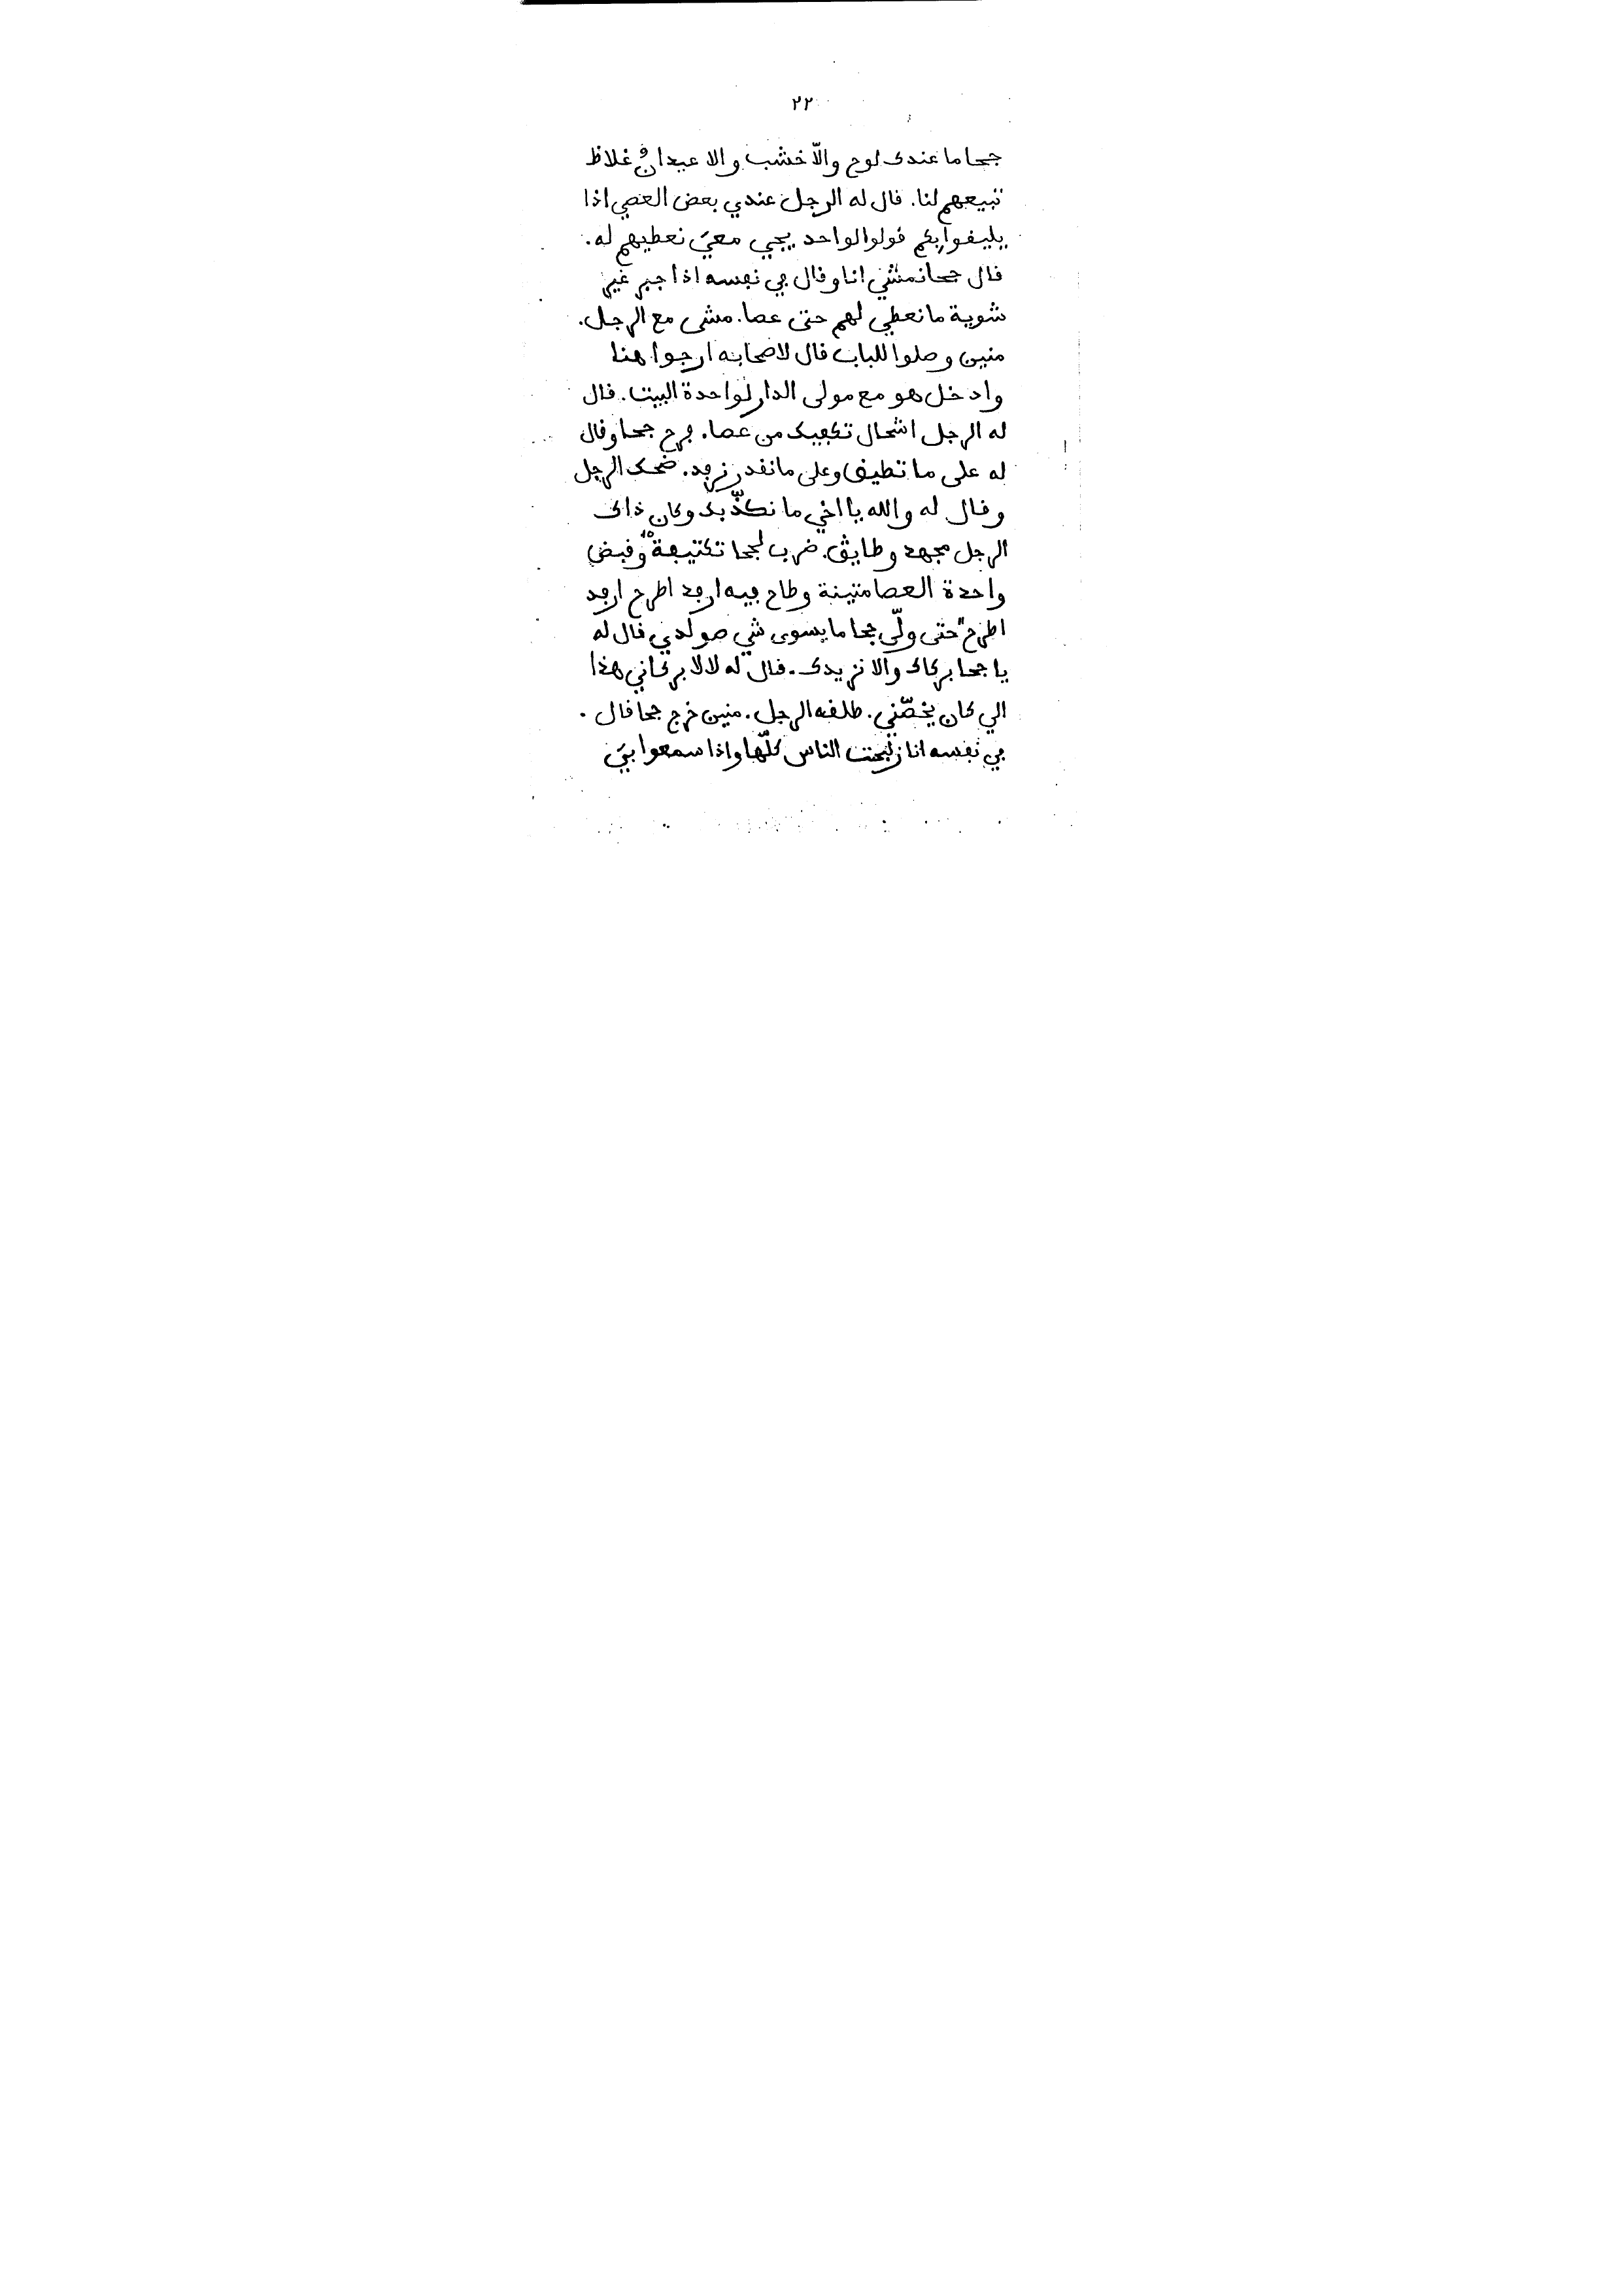 ٢٢
جحا ما عندك لوح والّا خشب والا عيدان غلاظ
تبيعهم لنا. قال له الرجل عندي بعض العصي اذا
يليقوا بكم قولوا لواحد يجي معيَ نعطيهم له.
قال جحا نمشي انا وقال في نفسه اذا جبر غير
شوية ما نعطي لهم حتى عصا. مشى مع الرجل.
منين وصلوا للباب قال لاصحابه ارجوا هنا
وادخل هو مع مولى الدار لواحدة البيت. قال
له الرجل اشحال تكفيك من عصا. فرح جحا وقال
له على ما تطيق وعلى ما نقدر نرفد. ضحك الرجل
وقال له والله يا اخي ما نكذّبك وكان ذاك
الرجل مجهد وطايق. ضرب لجحا تكتيفة وقبض
واحدة العصا متينة وطاح فيه ارفد اطرح ارفد
اطرح حتى ولّى جحا ما يسوى شي صولدي قال له
يا جحا بركاك والا نزيدك. قال له لا لا بركاني هذا
الي كان يخصّني. طلقه الرجل. منين خرج جحا قال
في نفسه انا زلبحت الناس كلّها واذا سمعوا بيَ